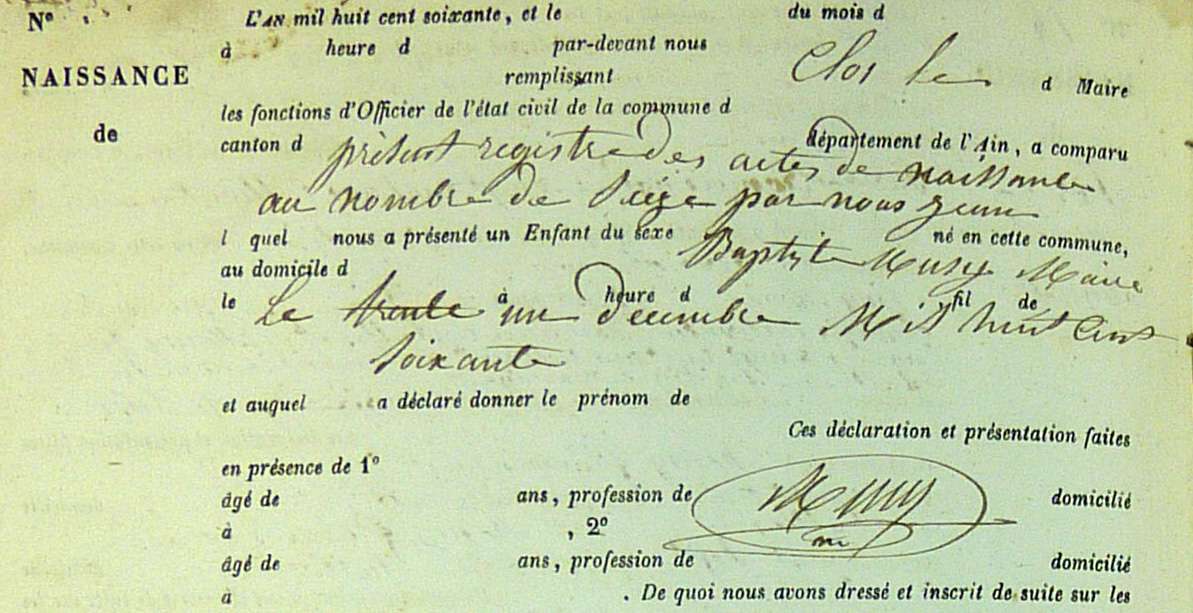 N° L'AN mil huit cent soixante, et le du mois d
à heure d par-devant nous
NAISSANCE remplissant Clos le d Maire
les fonctions d'Officier de l'état civil de la commune d
de canton d département de l'Ain, a comparu
présent registre des actes de naissance
au nombre de seize par nous Jean
l quel nous a présenté un Enfant du sexe né en cette commune,
Baptiste Musy Maire
au domicile d
le à heure d fil de
Le trente un decembre Mil huit Cent
soixante
et auquel a déclaré donner le prénom de
Ces déclaration et présentation faites
en présence de 1°
âgé de ans, profession de domicilié
Musy
à , 2°
m
âgé de ans, profession de domicilié
à . De quoi nous avons dressé et inscrit de suite sur les